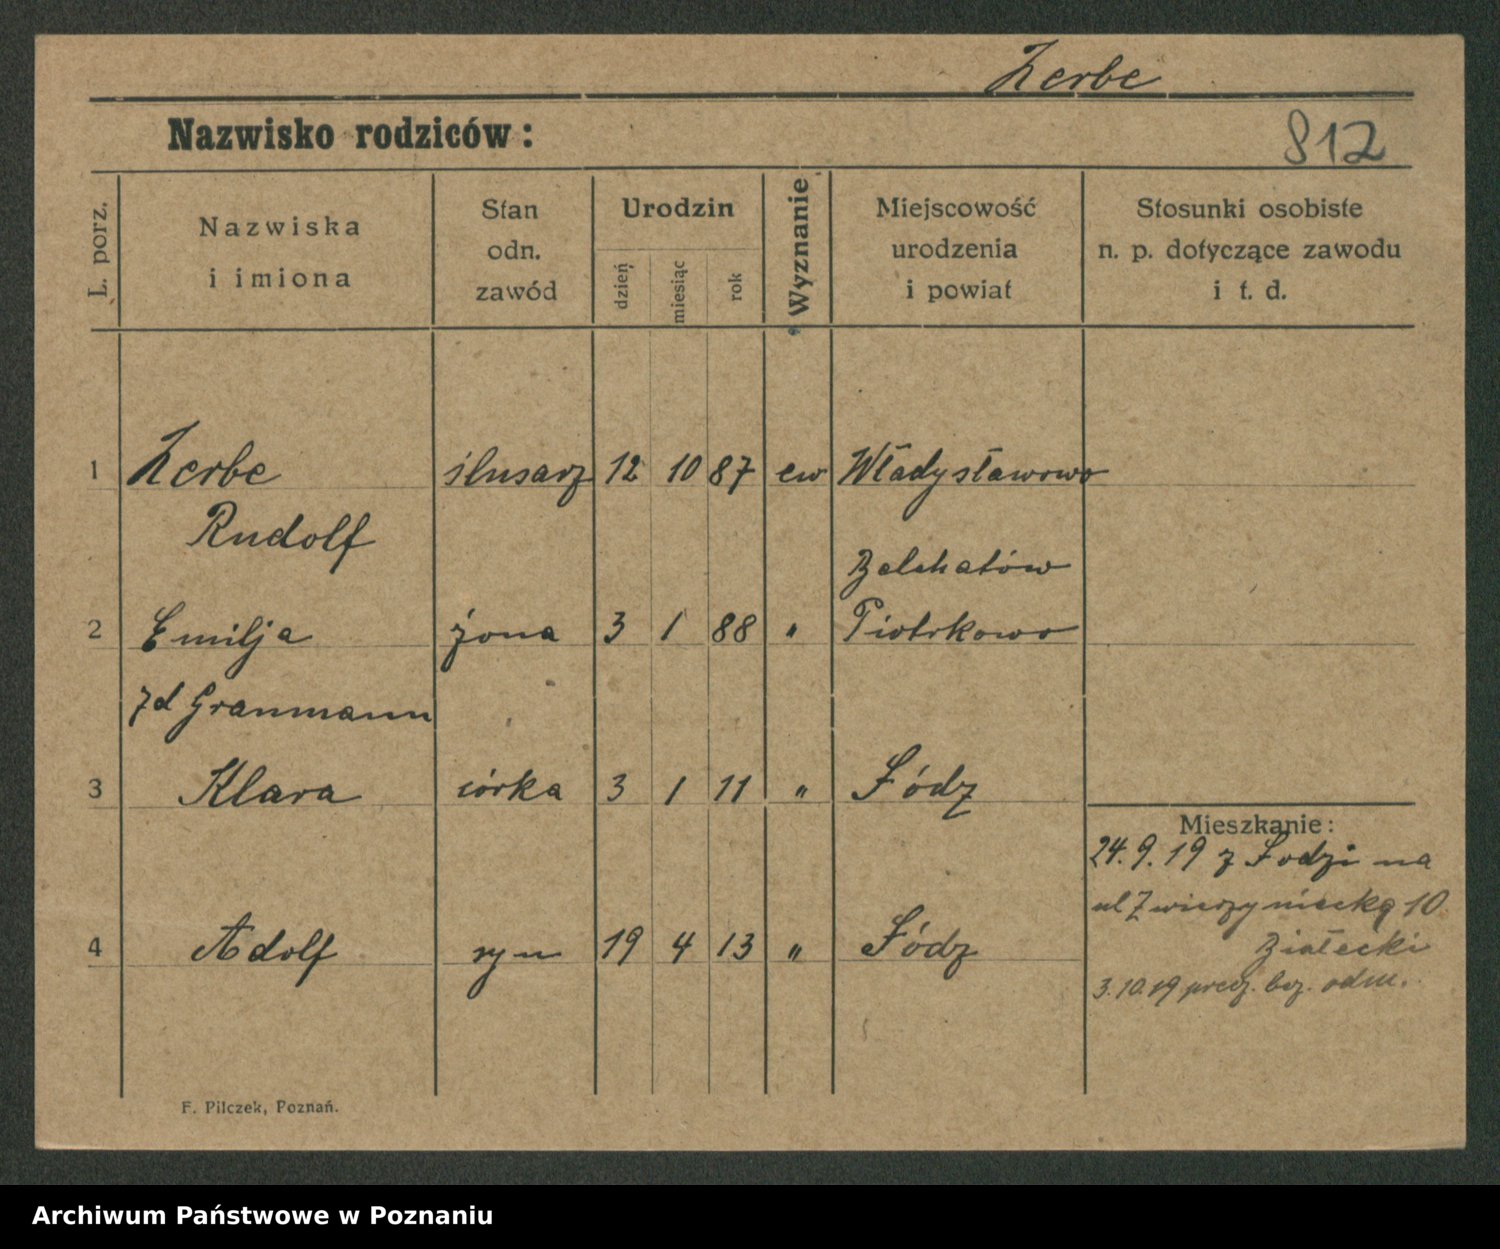 Zerbe
Nazwisko rodziców:
812
L. porz.
Nazwiska
i imiona
Stan
odn.
zawód
Urodzin
dzień
miesiąc
rok
Wyznanie
Miejscowość
urodzenia
i powiat
Stosunki osobiste
n. p. dotyczące zawodu
i t. d.
1 Zerbe ślusarz 12 10 87 ew Władysławowo
Rudolf
Belchatów
2 Emilja żona 3 1 88 " Piotrkowo
zd Granmann
3 Klara córka 3 1 11 " Łódz
Mieszkanie:
24.9.19 z Łodzi na
ul Zwierzyniecką 10
Białecki
4 Adolf syn 19 4 13 " Łódz
3.10.19 bez. odm.
F. Pilczek, Poznań.
Archiwum Państwowe w Poznaniu